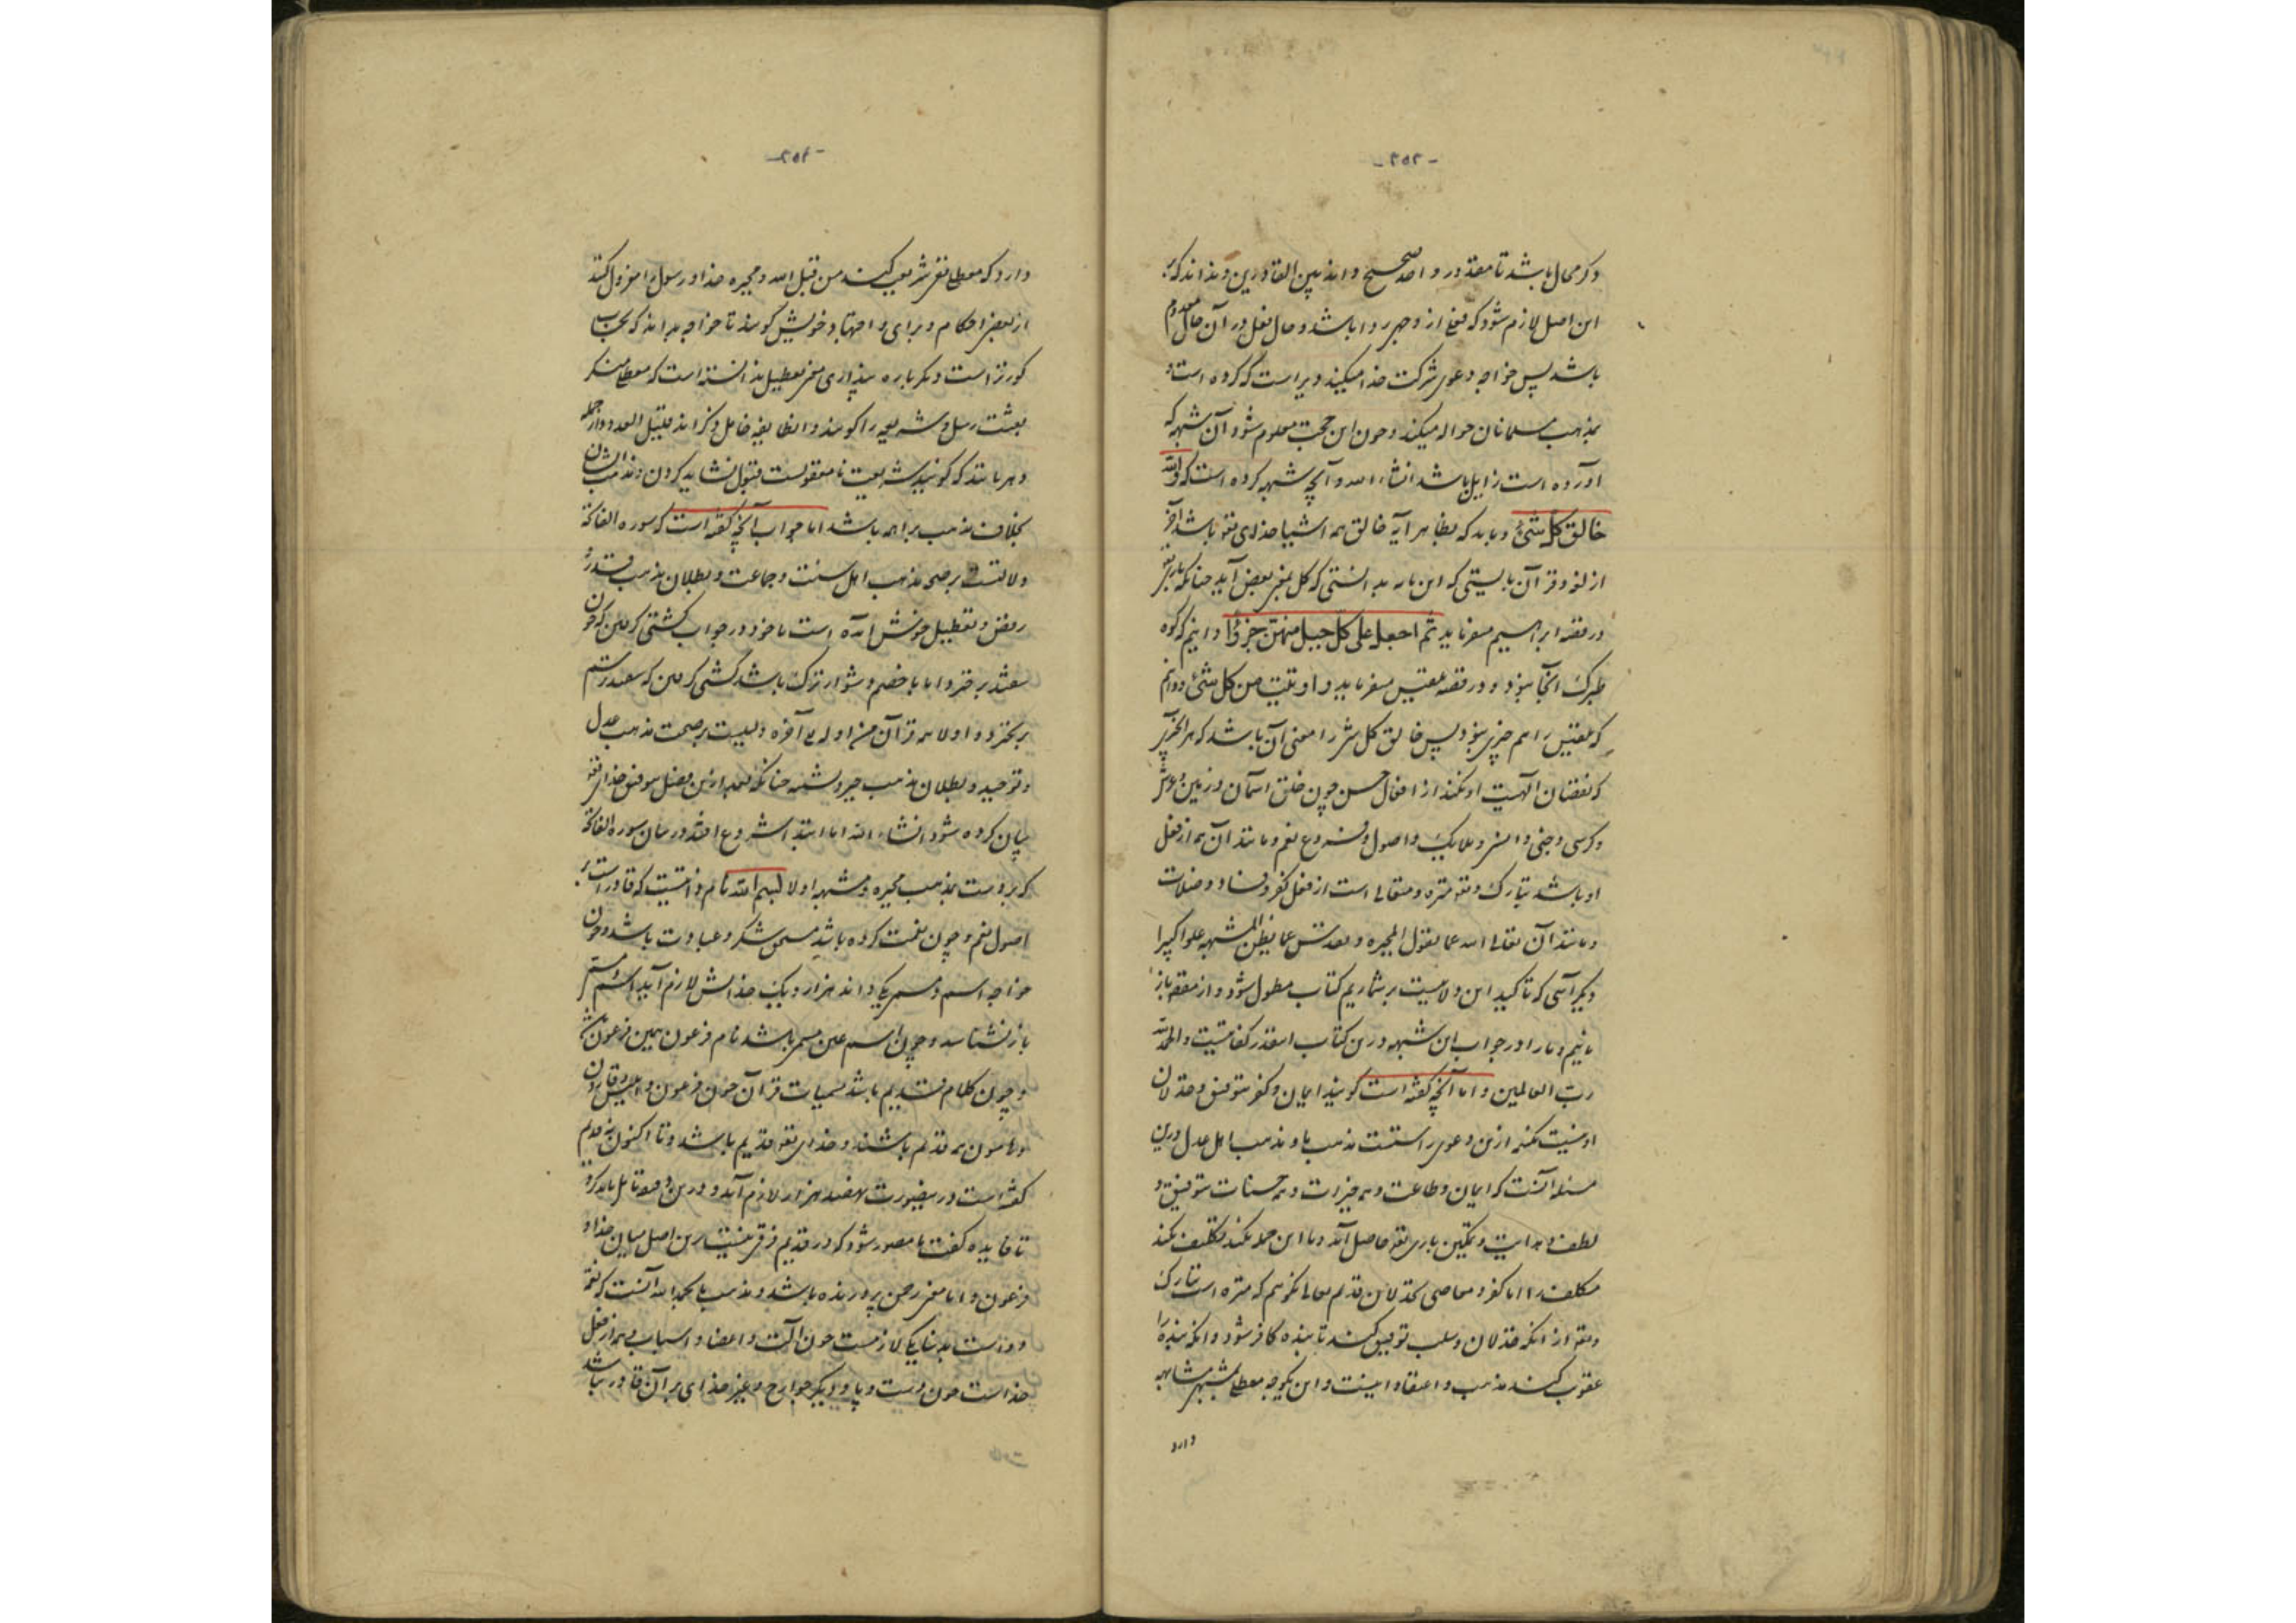 -۲۵۲-
دگر محال باشد تا مقدور واحد صحیح داند بین القادرین و نداند که بر
این اصل لازم شود که فعل از وجهی روا باشد و حال فعل در آن حال معدوم
باشد پس خواجه دعوی شرکت خدا میکند دیر است که کرده است و
بمذهب مسلمانان حواله میکند و چون این حجت معلوم شود آن شبهه که
آورده است زایل باشد انشاء الله و آنچه شبهه کرده است که والله
خالق کل شیء و باید که بظاهر آیه خالق همه اشیا خدای تعالی باشد آخر
از لغو قرآن بایستی که این مایه بدانستی که کل بمعنی بعض آید چنانکه باری تعالی
در قصه ابراهیم میفرماید ثم اجعل علی کل جبل منهن جزوا و دانیم که کوه
طبرک آنجا نبود و در قصه بلقیس میفرماید و اوتیت من کل شیء و دانیم
که بلقیس را هم چیزی نبود پس خالق کل شیء را معنی آن باشد که هر آنچیز
که نقصان الهیت او نکند از افعال حسن چون خلق آسمان و زمین و عرش
و کرسی و جنی و انسی و ملایک و اصول و فروع نعم و مانند آن همه از فعل
او باشد تبارک و تعالی منزه و متعالی است از فعل کفر و فساد و ضلالت
و مانند آن تعالی الله عما یقول المجبره و تقدس عما یظن المشبهه علوا کبیرا
دیگر آیتی که تاکید این ولایت بر شماریم کتاب مطول شود و از مقصود باز
مانیم و ما را در جواب این شبهه درین کتاب اینقدر کفایتست والحمد لله
رب العالمین و اما آنچه گفته است گویند ایمان و کفر بتوفیق و خذلان
او نیست نکته ازین دعوی راستست مذهب ما و مذهب اهل عدل درین
مسئله آنست که ایمان و طاعت و همه خیرات و همه حسنات بتوفیق و
لطف و هدایت و تمکین باری تعالی حاصل آید و تا این جمله نکند تکلیف نکند
مکلف را اما کفر و معاصی بخذلان قدیم تعالی نگوئیم که منزه است تبارک
و تعالی از آنکه خذلان و سلب توفیق کند تا بنده کافر شود و آنکه بنده را
عقوبت کند مذهب و اعتقاد اینست و این بکوجه معطله مشبهه مشابهه
دارد
-۲۵۳-
دارد که معطله نفی شریعت کنند من قبل الله و مجبره خدا و رسول را معزول کنند
از بعضی احکام و برای و اجتهاد خویش گویند تا خواجه بداند که بحساب
کورتر است دیگر باره پنداری معنی تعطیل ندانسته است که معطله منکر
بعثت رسل و شریعه را گویند و آن طایفه خامل ذکراند قلیل العدد و از جمله
دهریانند که گویند شریعت نامعقولست قبول نشاید کردن و مذهب ایشان
بخلاف مذهب براهمه باشد اما جواب آنچه گفته است که سوره الفاتحة
دلالتست بر صحة مذهب اهل سنت و جماعت و بطلان مذهب قدر و
رفض و تعطیل خوش آمده است ما خود در جواب کشتی گرفتن که چون
بیفتد برخیزد اما با خصم دشوارترک باشد کشتی گرفتن که بیفتد رستم
برنخیزد و اولا همه قرآن من اوله الی آخره دلیلست بر صحت مذهب عدل
و توحید و بطلان مذهب جبر و تشبیه چنانکه بعد ازین فصل بتوفیق خدای تعالی
بیان کرده شود انشاء الله اما ابتدا شروع افتد در بیان سوره الفاتحة
که بر دست بمذهب مجبره و مشبهه اولا بسم الله نام ذاتیست که قادر است بر
اصول نعم و چون نعمت کرده باشد مستحق شکر و عبادت باشد و چون
خواجه اسم و مسمی یکی داند هزار و یک خدایش لازم آید اسم و مسمی
باز نشناسد و چون اسم عین مسمی باشد نام فرعون همین فرعون باشد
و چون کلام قدیم باشد مسمیات قرآن چون فرعون و ابلیس و قارون
و هامون همه قدیم باشند و خدای تعالی قدیم باشد و تا اکنون نه قدیم
گفته است درینصورت هفصد هزار لازم آید و درین موضع تامل باید کرد
تا فایده گفت ما مصور شود که در قدیم فرقی نیست برین اصل میان خدا و
فرعون و اما معنی رحمن پرورنده باشد و مذهب ما بحمد الله آنست که نعمة
دو است بدینا یکی لازمست چون آلت و اعضا و اسباب و همه از فعل
خداست چون دست و پا و دیگر جوارح و غیر خدای بر آن قادر نباشد